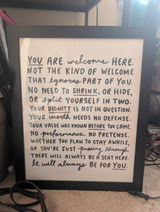 YOU ARE welcome HERE.
NOT THE KIND OF WELCOME
THAT ignores PART OF YOU.
NO NEED TO SHRINK, OR HIDE,
OR split YOURSELF IN TWO.
YOUR DIGNITY IS NOT IN QUESTION.
YOUR worth NEEDS NO DEFENSE.
YOUR VALUE WAS KNOWN BEFORE YOU CAME.
NO performance. NO PRETENSE.
WHETHER YOU PLAN TO STAY AWHILE,
OR YOU'RE JUST passing through
THERE WILL ALWAYS BE A SEAT HERE.
It will always BE FOR YOU.